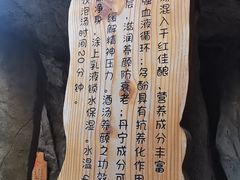 混入干红佳酿，营养成分丰富
血液循环；多酚具有抗养化作用
后，滋润养颜防衰老；丹宁成分可
缓解精神压力。酒汤养颜之功效
净身，涂上乳液锁水保湿。水温
泡汤时间20分钟。